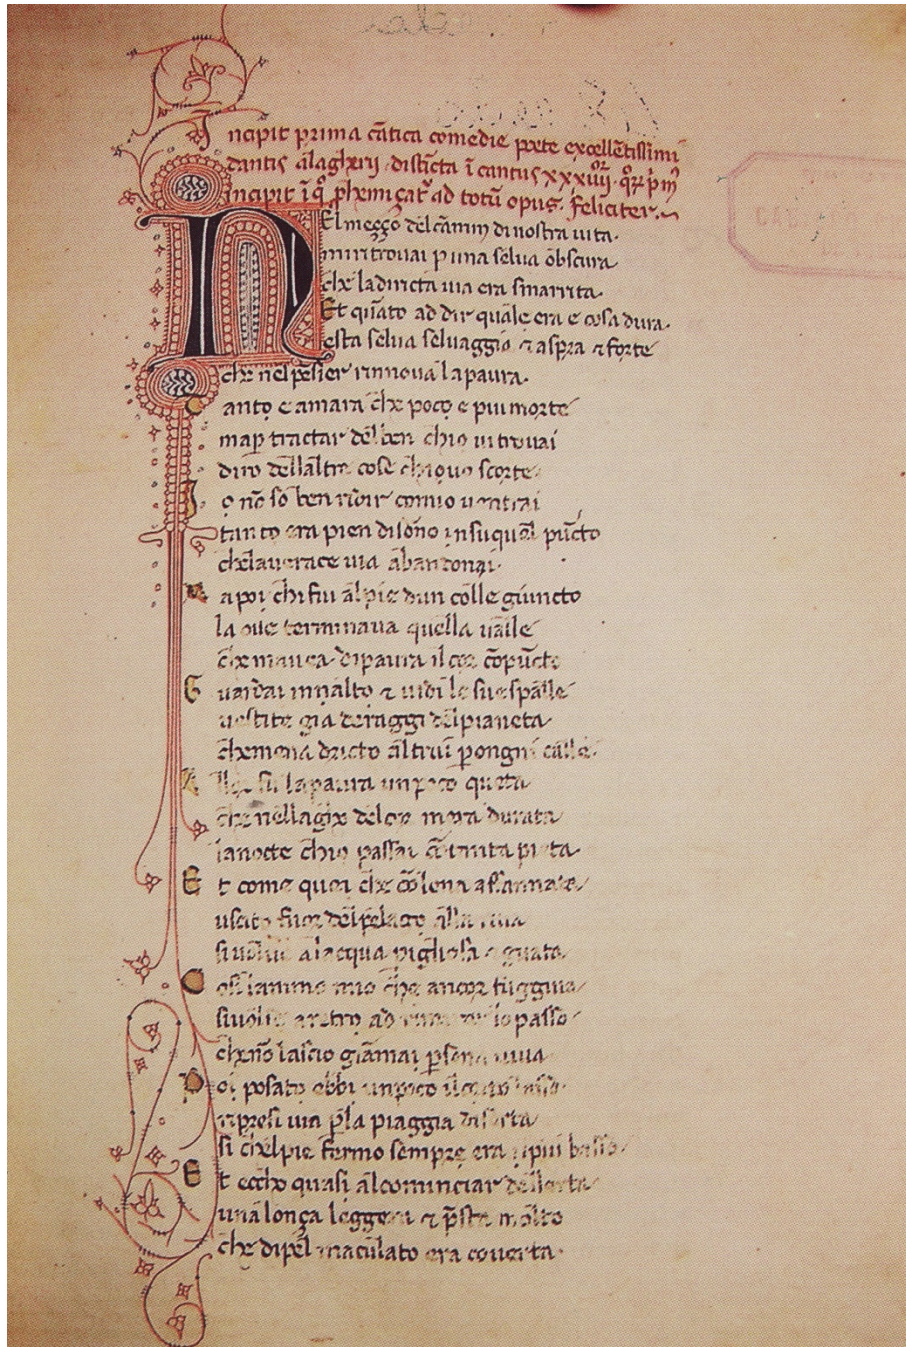 Incipit prima cātica comedie poete excellētissimi
dantis alagherij distīcta ī cantus xxxiiii
incipit ī ad totū opus. feliciter.
NEl meçço del camin di nostra uita
mi ritrouai p una selua obscura
che la diricta uia era smarrita.
Et quāto ad dir quale era e cosa dura
esta selua seluaggia ⁊ aspra ⁊ forte
che nel pēsier rinnoua la paura.
Tanto e amara che poco e piu morte
ma p tractar del ben chio ui trouai
diro dellaltre cose chi scorte
Io nō so ben ridir comio uentrai
tanto era pien di sōno in su quel pūcto
che la uerace uia abandonai.
Ma poi chi fui al pie dun colle giuncto
la oue terminaua quella ualle
che mauea di paura il cor cōpuncto
Guardai in nalto ⁊ uidi le sue spalle
uestite gia de raggi del pianeta
che mena dricto altrui p ongni calle.
Allor fu la paura un poco queta
che nel lago del cor durata
la nocte chio passai pieta
Et come quei che cō lena affannata
uscito fuor del pelago alla riua
si uolue a lacqua pigliosa e guata
Cosi lanimo mio che ancor fuggiua
si uolse a retro ad lo passo
che nō lascio giamai psona uiua
Poi posato ebbi un poco il lasso
ripresi uia p la piaggia diserta
si chel pie fermo sempre era il piu basso
Et eccho quasi al cominciar dellerta
una lonça leggera ⁊ psta molto
che di pel maculato era couerta.